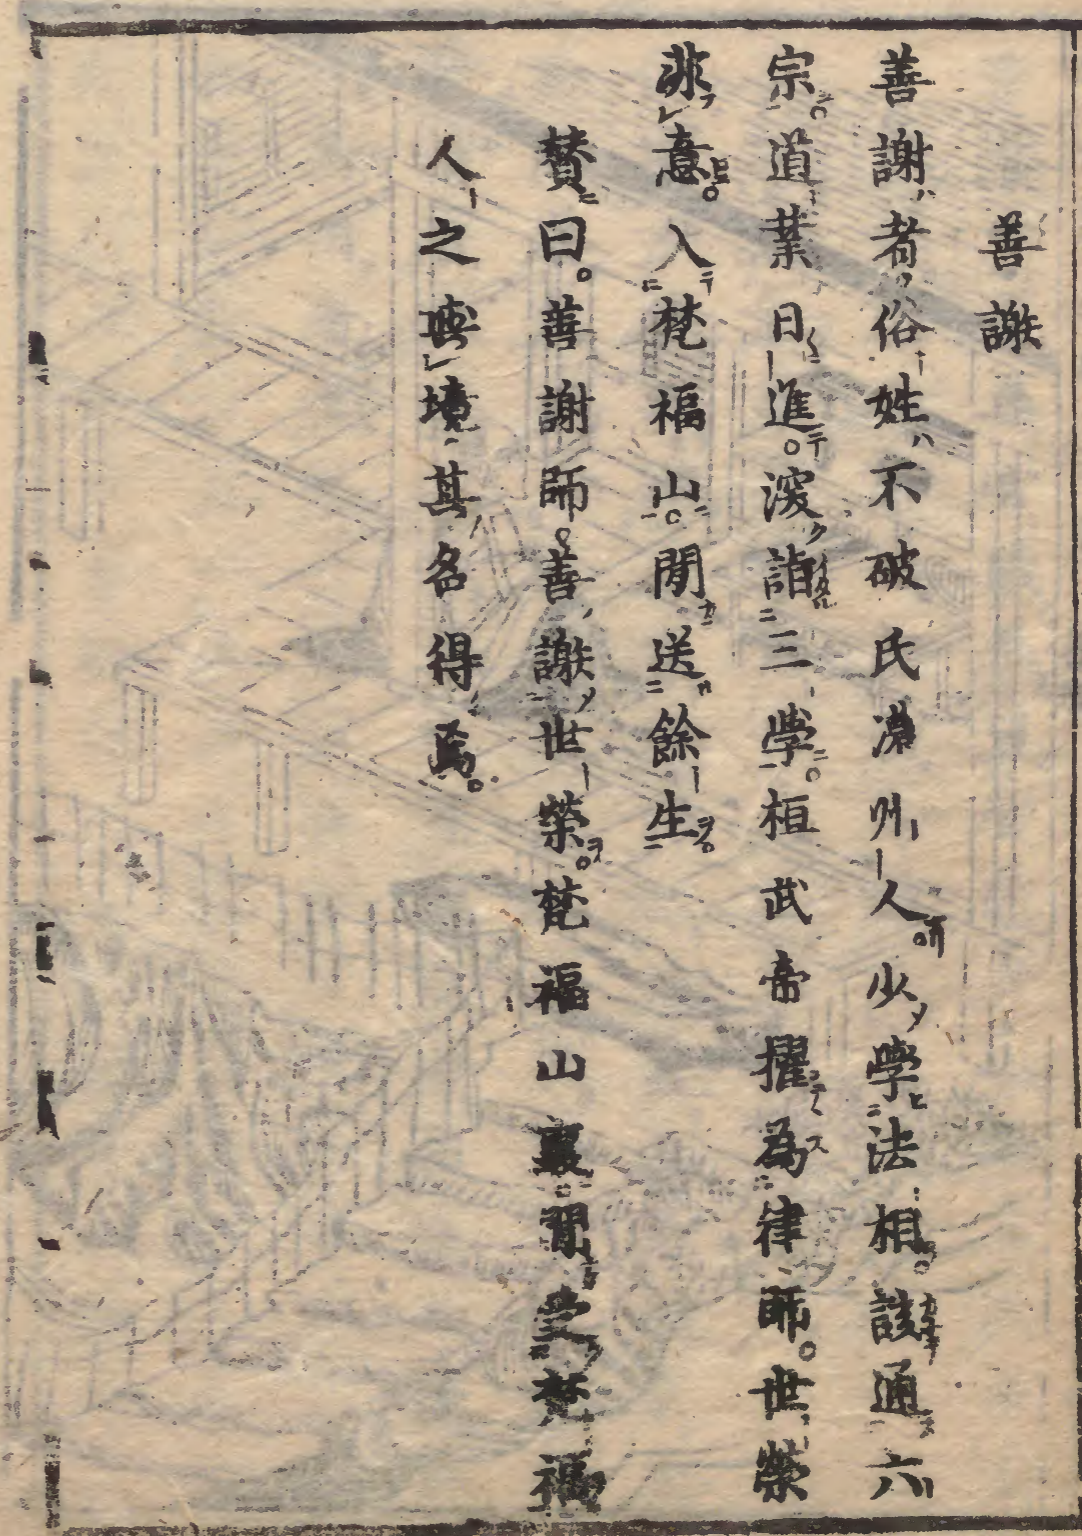 善謝
善謝者俗姓不破氏濃州人少學法相該通六
宗道業日進深詣三學桓武帝擢為律師世榮
非意入梵福山閒送餘生
賛曰善謝師善謝世榮梵福山裏閒受梵福
人之與境其名得焉